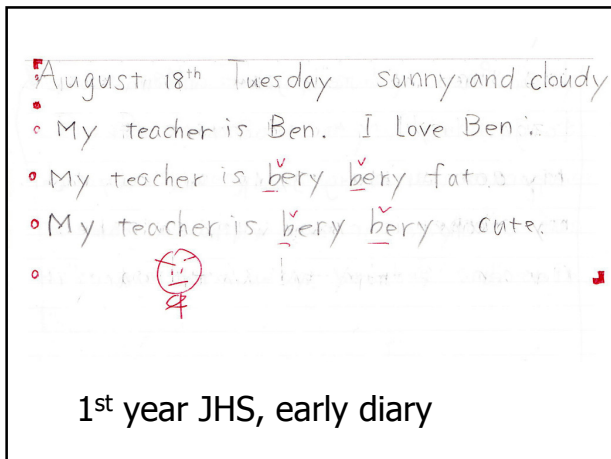 August 18th Tuesday sunny and cloudy
My teacher is Ben. I Love Ben.
My teacher is bery bery fat.
v v
My teacher is bery bery cute.
v v
1st year JHS, early diary